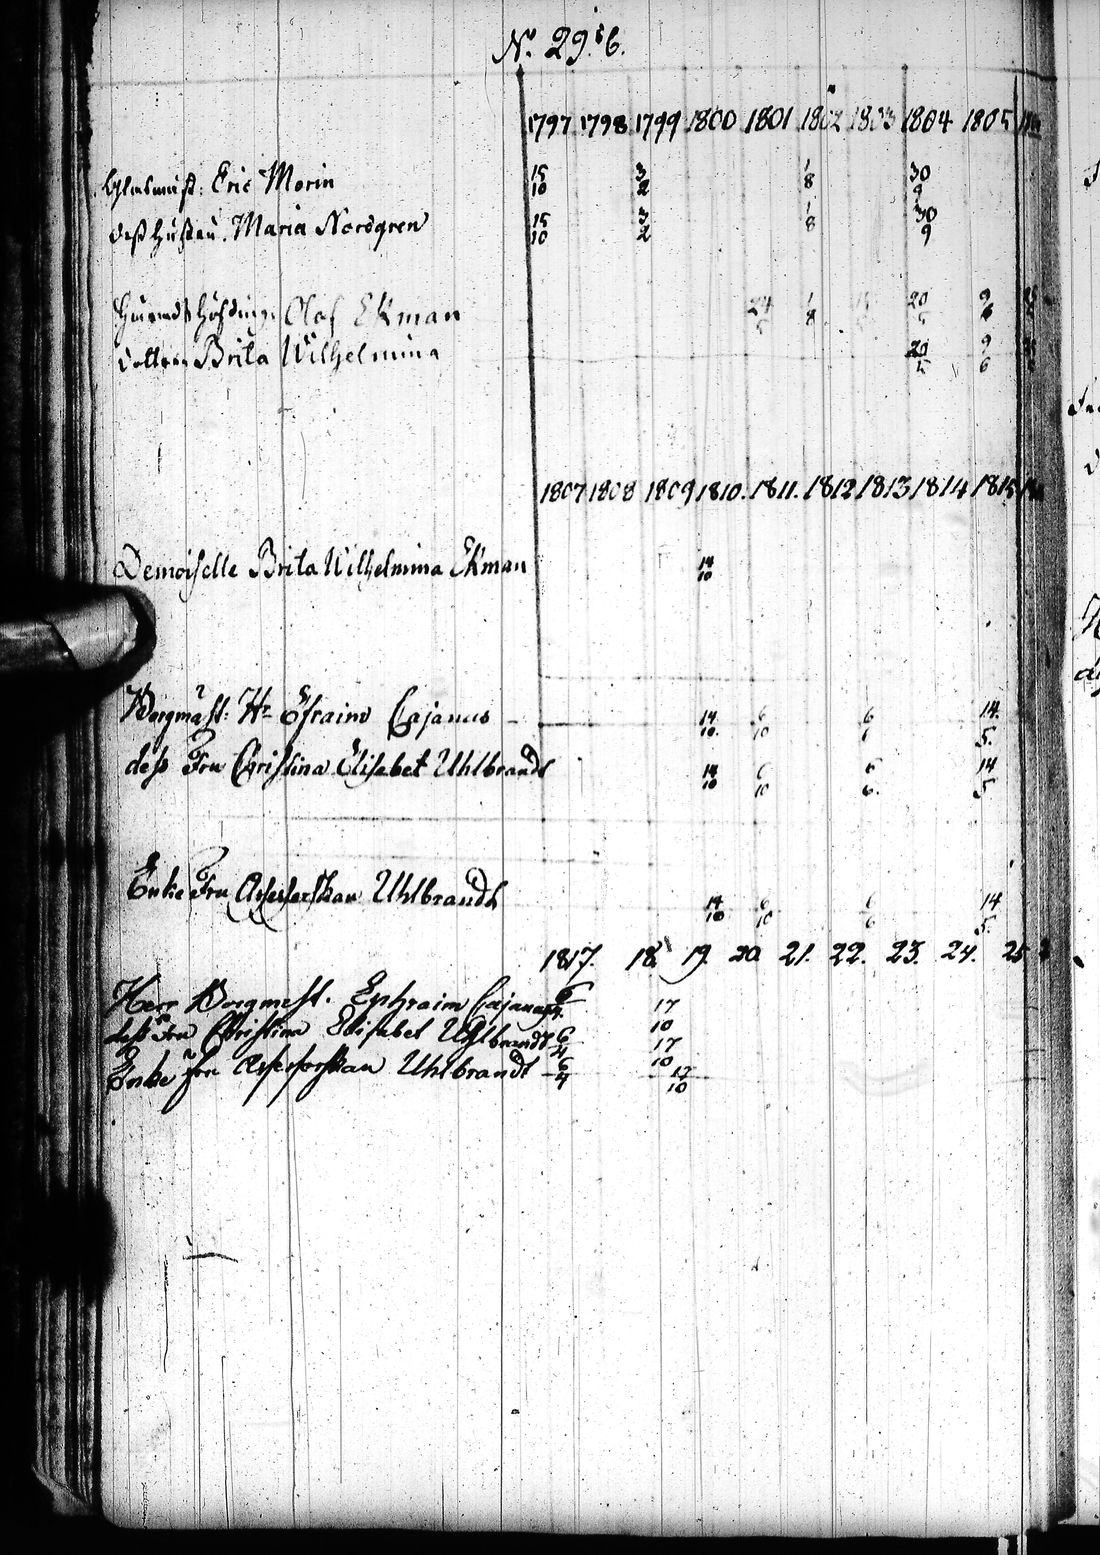 N. 29. 6.
1797 1798 1799 1800 1801 1802 1803 1804 1805
Eric Morin 15/10 3/2 1/8 30/9
deß Hustru. Maria Nordgren 15/10 3/2 1/8 30/9
Häradshöfding. Olof Ekman 24/5 1/8 20/5 9/6
dottren Brita Wilhelmina 20/5 9/6
1807 1808 1809 1810. 1811. 1812 1813 1814 1815
Demoiselle Brita Wilhelmina Ekman 14/10
Borgmäst: Hr Efraim Cajanus 14/10. 6/10 6 14/5.
deß Fru Christina Elisabet Uhlbrandt 14/10 6/10 6/6. 14/5
Enke Fru Assessorskan Uhlbrandt 14/10 6/10 6/6 14/5.
1817. 18 19. 20 21. 22. 23. 24. 25
Herr Borgmest. Ephraim Cajanus 6/4. 17/10
deß Fru Christina Elisabet Uhlbrandt 6/4 17/10
Enke fru Assessorskan Uhlbrandt 6/4 17/10